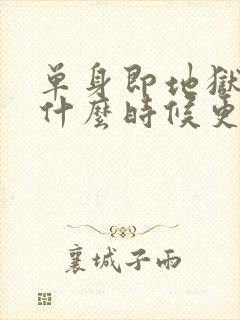 單身即地獄
什麼時候更
襄城子雨